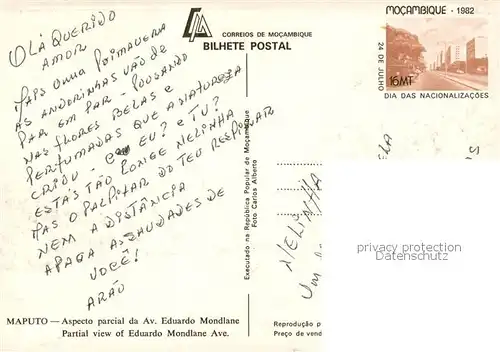 CORREIOS DE MOÇAMBIQUE
BILHETE POSTAL
MOÇAMBIQUE · 1982
24 DE JULHO
16MT
DIA DAS NACIONALIZAÇÕES
OLÁ QUERIDO
AMOR
MAPS UMA PRIMAVERA
AS ANDORINHAS VÃO DE
PAR EM PAR - POUSANDO
NAS FLORES BELAS E
PERFUMADAS QUE A NATUREZA
CRIOU - E EU? E TU?
ESTÁS TÃO LONGE NELINHA
MAS O PALPITAR DO TEU RESPIRAR
NEM A DISTÂNCIA
APAGA AS SAUDADES DE
VOCÊ!
ARÃO
MAPUTO — Aspecto parcial da Av. Eduardo Mondlane
Partial view of Eduardo Mondlane Ave.
Executado na República Popular de Moçambique
Foto Carlos Alberto
NELINHA
ELA
Reprodução p
Preço de vend
privacy protection
by ansichtskartenversand.com